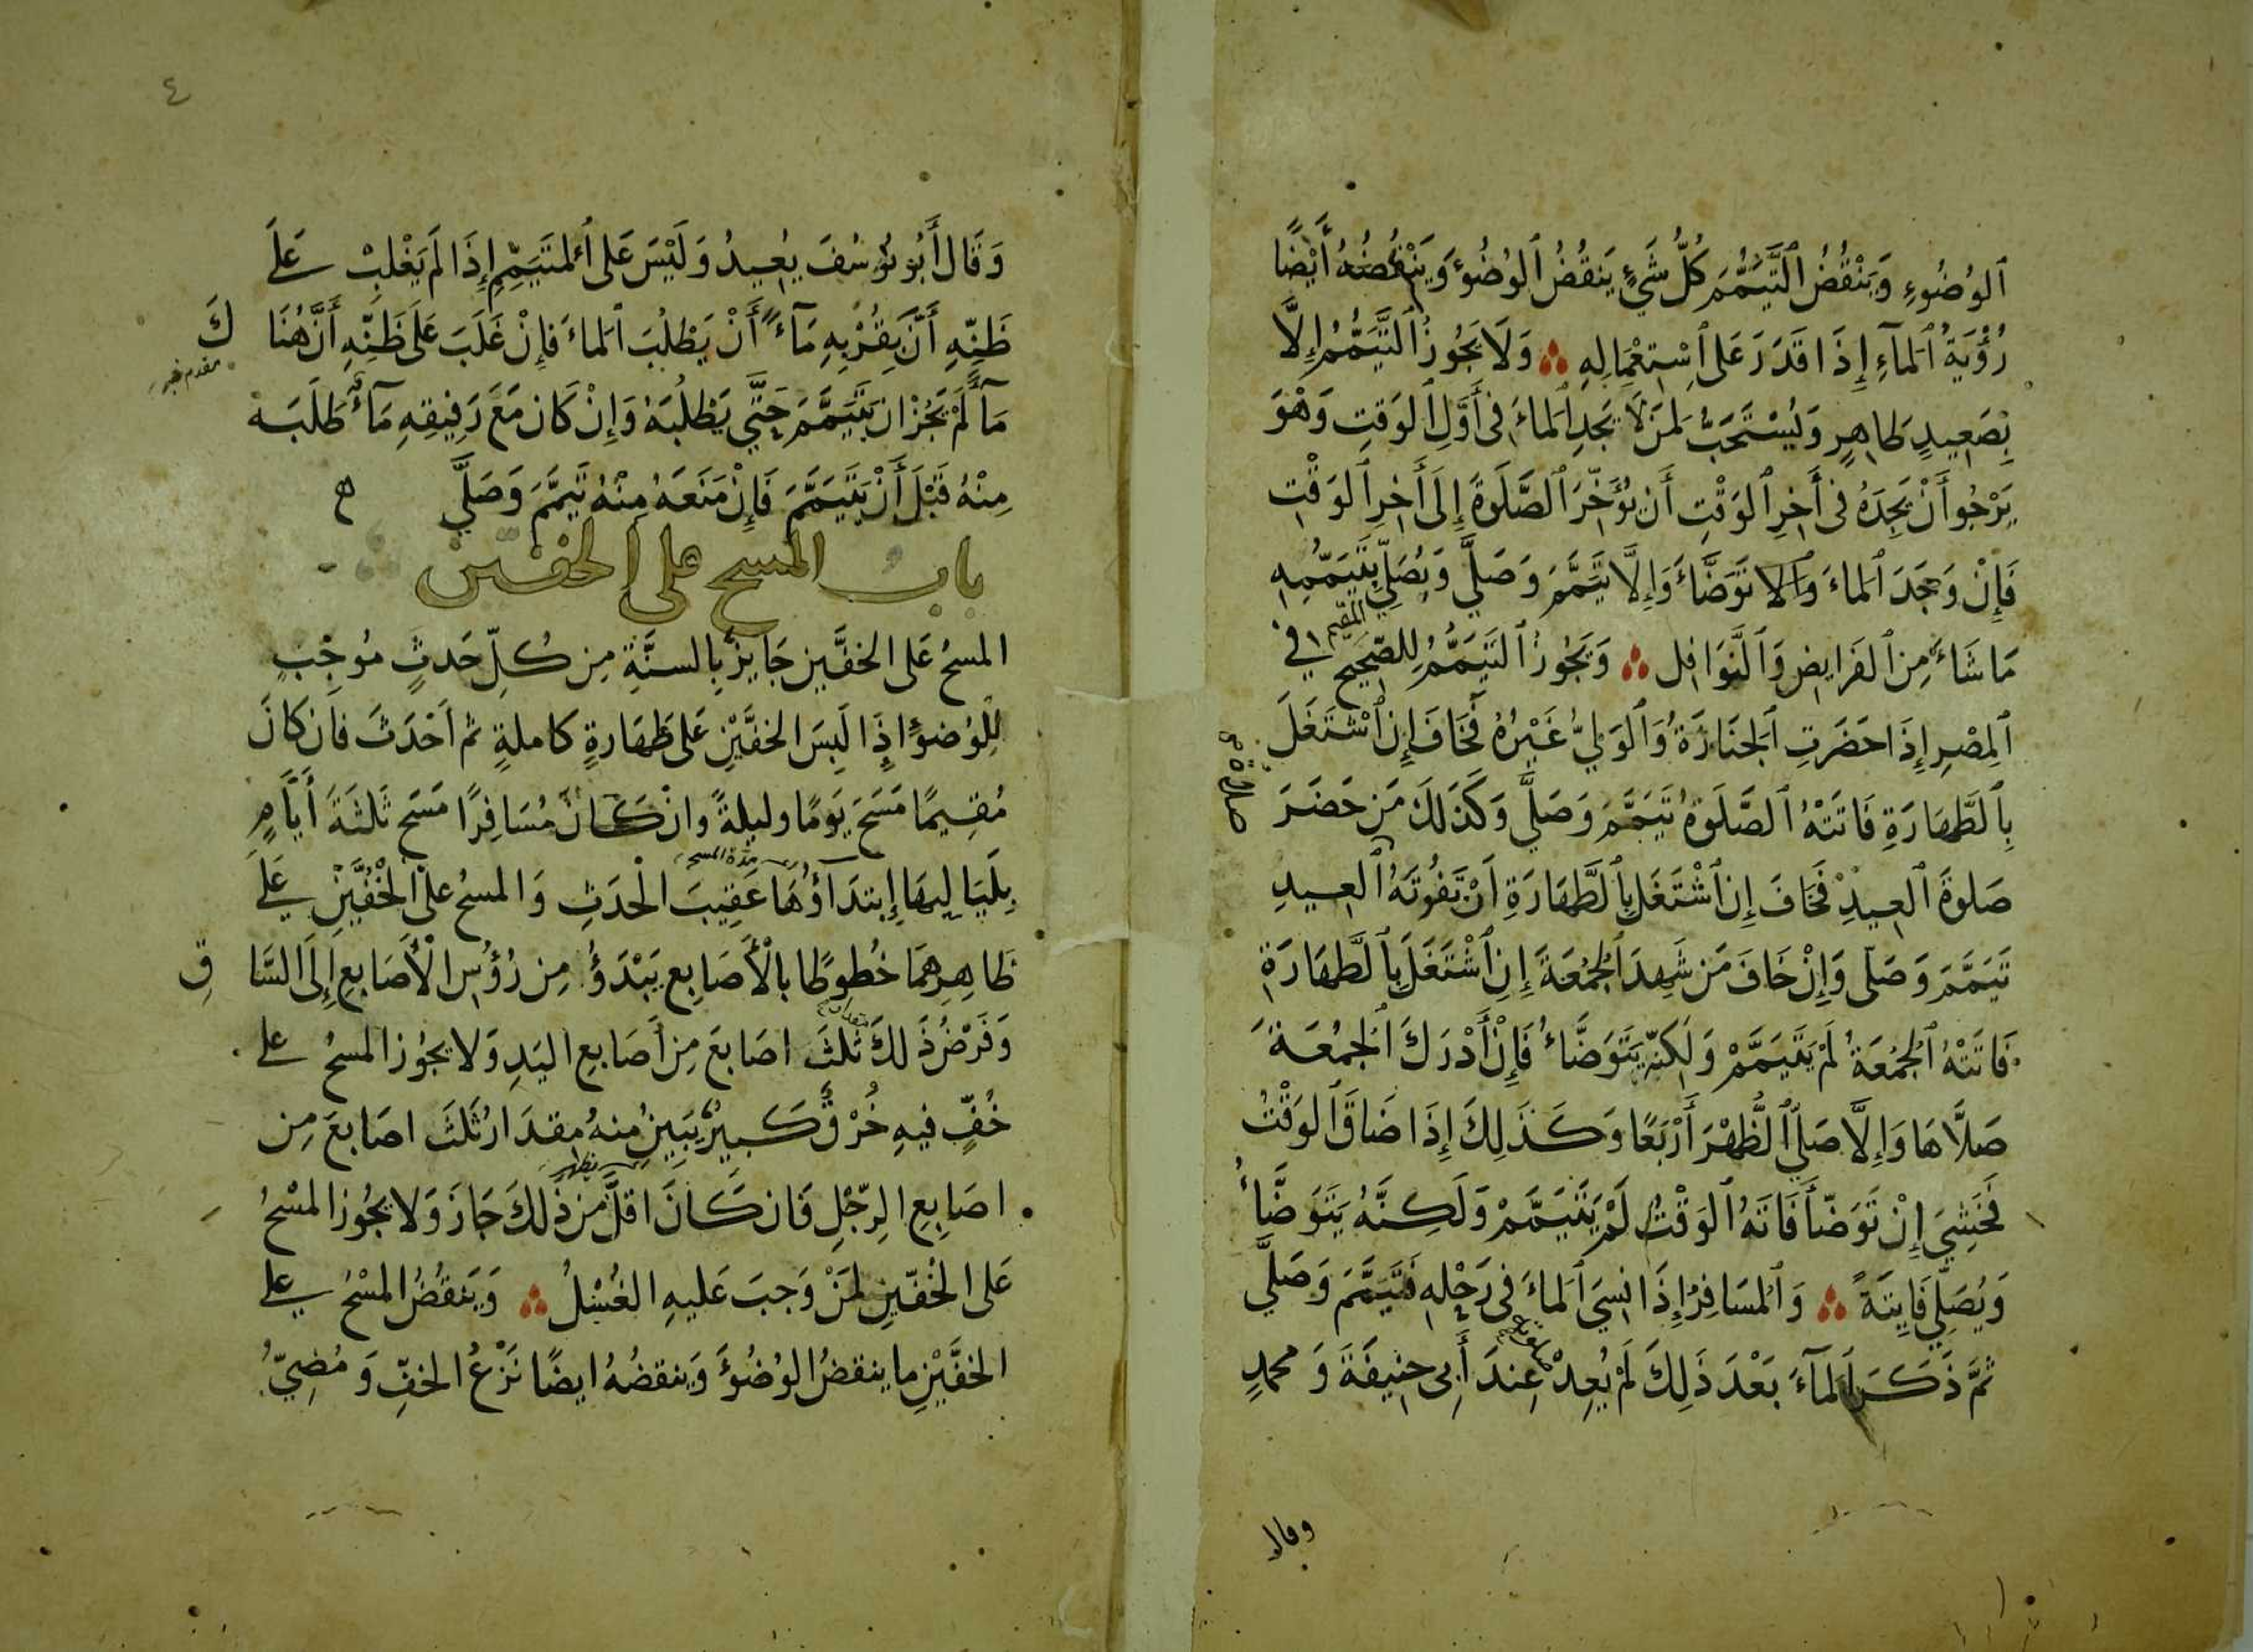 ٱلوُضُوءِ وَيَنْقُضُ ٱلتَّيَمُّمَ كُلُّ شَيْءٍ يَنقُضُ ٱلوُضُوءَ وَيَنْقُضُهُ أَيْضًا
رُؤْيَةُ ٱلمَآءِ إِذَا قَدَرَ عَلَى ٱسْتِعْمَالِهِ ؞ وَلَا يَجُوزُ ٱلتَّيَمُّمُ إِلَّا
بِصَعِيدٍ طَاهِرٍ وَيُسْتَحَبُّ لمَن لَا يَجِدِ ٱلمَاءَ فِى أَوَّلِ ٱلوَقتِ وَهْوَ
يَرْجُو أَنْ يَجِدَهُ فى أَخِرِ ٱلوَقْتِ أَن يُؤَخِّرَ ٱلصَّلَوةَ إِلَى أَخِرِ ٱلوَقْتِ
فَإِنْ وَجَدَ ٱلمَاءَ وَٱلا تَوَضَّأَ وَإِلَّا تَيَمَّمَ وَصَلَّي وَيُصَلِّي بِتَيَمُّمِهِ
مَا شَاءَ مِنَ ٱلفَرايِضِ وَٱلنَّوَافِل ؞ وَيَجُوزُ ٱلتَيَمُّمُ لِلصَّحِيحِ المقيم في
ٱلمِصْرِ إِذَا حَضَرَتِ ٱلجَنَازَةُ وَٱلوَلِيُّ غَيْرُهُ فَخَافَ إِن ٱشْتَغَلَ
بِٱلطَّهَارَةِ فَاتَتْهُ ٱلصَّلَوةُ تَيَمَّمَ وَصَلَّي وَكَذَلِكَ مَن حَضَرَ
صَلوةَ ٱلعِيدِ فَخَافَ إِن ٱشْتَغَلَ بِٱلطَّهَارَةِ اَنْ تَفُوتَهُ ٱلعِيدِ
تَيَمَّمَ وَصَلَّى وَإِنْ خَافَ مَن شَهِدَ ٱلجُمُعَةَ إِنِ ٱشْتَغَلَ بِٱلطَّهَارَةِ
فَاتَتْهُ ٱلجُمُعَةُ لَمْ يَتَيَمَّمْ وَلَكِنَّهُ يَتَوَضَّاءُ فَإِنْ أَدْرَكَ ٱلجُمُعَةَ
صَلَّاهَا وَإِلَّا صَلَّي ٱلظُّهْرَ أَرْبَعًا وَكَذَلِكَ إِذَا ضَاقَ ٱلوَقْتُ
فَخَشِيَ إِنْ تَوَضَّأَ فَاتَهُ ٱلوَقْتُ لَمْ يَتَيَمَّمْ وَلَكِنَّهُ يَتَوَضَّاءُ
وَيُصَلِّي فَايِتَةً ؞ وَٱلمُسَافِرُ إِذَا نسِيَ ٱلمَاءَ فى رَحْلِهِ فَتَيَمَّمَ وَصَلَّي
ثمَّ ذَكَرَ ٱلمَآءَ بَعْدَ ذَلِكَ لَمْ يُعِدْ عِندَ أَبِى حنِيفَةَ وَ محمدٍ
وقال
٤
وَقَالَ أَبُو يُوسُفَ يُعِيدُ وَلَيْسَ عَلى ٱلمتَيَمِّمِ إِذَا لَمْ يَغْلِبْ عَلَي
ظَنِّهِ أَنَّ بِقُرْبِهِ مَآءً أَنْ يَطْلُبَ ٱلماءَ فَإِنْ غَلَبَ عَلَى ظَنِّهِ أَنَّ هُنَاكَ
مَآءً لَمْ يَجُزْ ان يَتَيَمَّمَ حَتَّي يَطْلُبَهُ وَإِنْ كَانَ مَعَ رَفِيقِهِ مَآءٌ طَلَبَهُ
مِنْهُ قَبْلَ أَنْ يَتَيَمَّمَ فَإِنْ مَنَعَهُ مِنْهُ تَيَمَّمَ وَصَلَّي
باب المسح على الخفين
المسحُ عَلى الخفَّين جَايزٌ بِالسنَّةِ مِن كُلِّ حَدثٍ مُوجِبٍ
لِلْوُضوءِ إِذَا لَبِسَ الخفَّيْنِ عَلى طَهَارَةٍ كاملةٍ ثم اَحْدَثَ فَاِن كَانَ
مُقِيمًا مَسَحَ يَومًا وليلةً وانْ كَانَ مُسَافِرًا مَسَح ثَلثَةَ أَيَّامٍ
بِلَيَالِيهَا اِبتدَآؤُهَا عَقِيبَ الْحَدَثِ وَالمسحُ على الْخُفَّيْنِ عَلَي
مدة المسح
ظاهِرِهمَا خُطوطًا بالْأَصَابِعِ يَبْدَؤُ مِن رُؤُسِ الْأَصَابعِ إِلَى السَّاقِ
وَفَرْضُ ذَلكَ ثَلثُ اصَابعَ مِن أَصَابعِ اليَدِ وَلا يجوُز المسحُ علي
خُفٍّ فيهِ خُرْقٌ كَبيرٌ يَبِينُ مِنهُ مِقدَارُ ثَلَثَ اصَابعَ مِن
يظهر
اصَابِعِ الرِّجْلِ فَان كَانَ اقلَّ مِن ذَلكَ جَازَ وَلا يجُوز المسْحُ
عَلى الخُفّينِ لمَنْ وَجبَ عَليهِ الغُسْلُ ؞ وَيَنقُضُ المسْحُ علي
الخفَّيْنِ ما ينقضُ الوُضُوءَ وَينقضُهُ ايضًا نَزْعُ الخفِّ وَمُضِيُّ